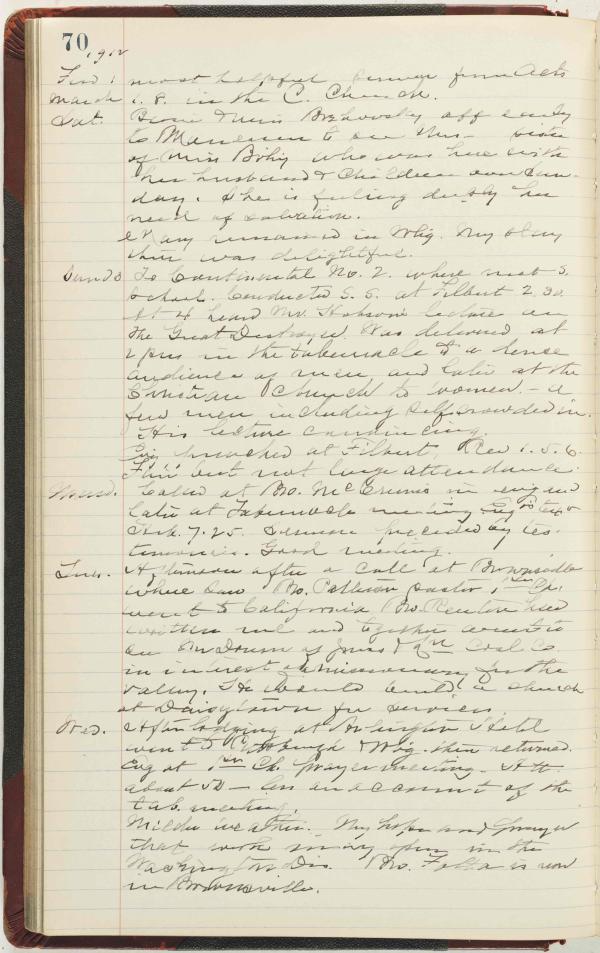 70 1912
Frid 1 most helpful sermon from Acts
March 1.8. in the C. Church.
Sat. Bessie & Miss Brehovsky off early
to Manessen to see Mrs - sister
of Miss Bohiy who was here with
her husband & children one Sun-
day. She is feeling deeply her
need of salvation.
Mary remained in Wbg. My stay
there was delightful.
Sund 3 To Continental No. 2. where met S.
School. Conducted S. S. at Filbert 2.30.
At 4 heard Mr. Hobson lecture on
The Great Destroyer. Was delivered at
2 pm in the tabernacle to a dense
audience of men and later at the
Christian Church to women. - a
few men including self crowded in.
His lecture convincing.
Evg. preached at Filbert, Rev 1.5.6.
Fair but not large attendance.
Mond. Called at Bro. McCrumis in evg and
later at Tabernacle meeting text
Heb. 7.25. Sermon preceded by tes-
timonies. Good meeting.
Tues. Afternoon after a call at Brownsville
where saw Bro. Patterson pastor 1st Ch.
went to California Bro. Renton had
written me and together went to
see Mr of Jones & Coal Co.
in interest of missionary for the
valley. He would build a church
at Daisytown for services.
Wed. After lodging at Arlington Hotel
went to Pittsburgh & Wbg. then returned.
Evg at 1st Ch. prayer meeting. Att.
about 50 - less on account of the
tab. meeting.
Milder weather. My hope and prayer
that work may open in the
Washington Dis. Bro. Folta is now
in Brownsville.